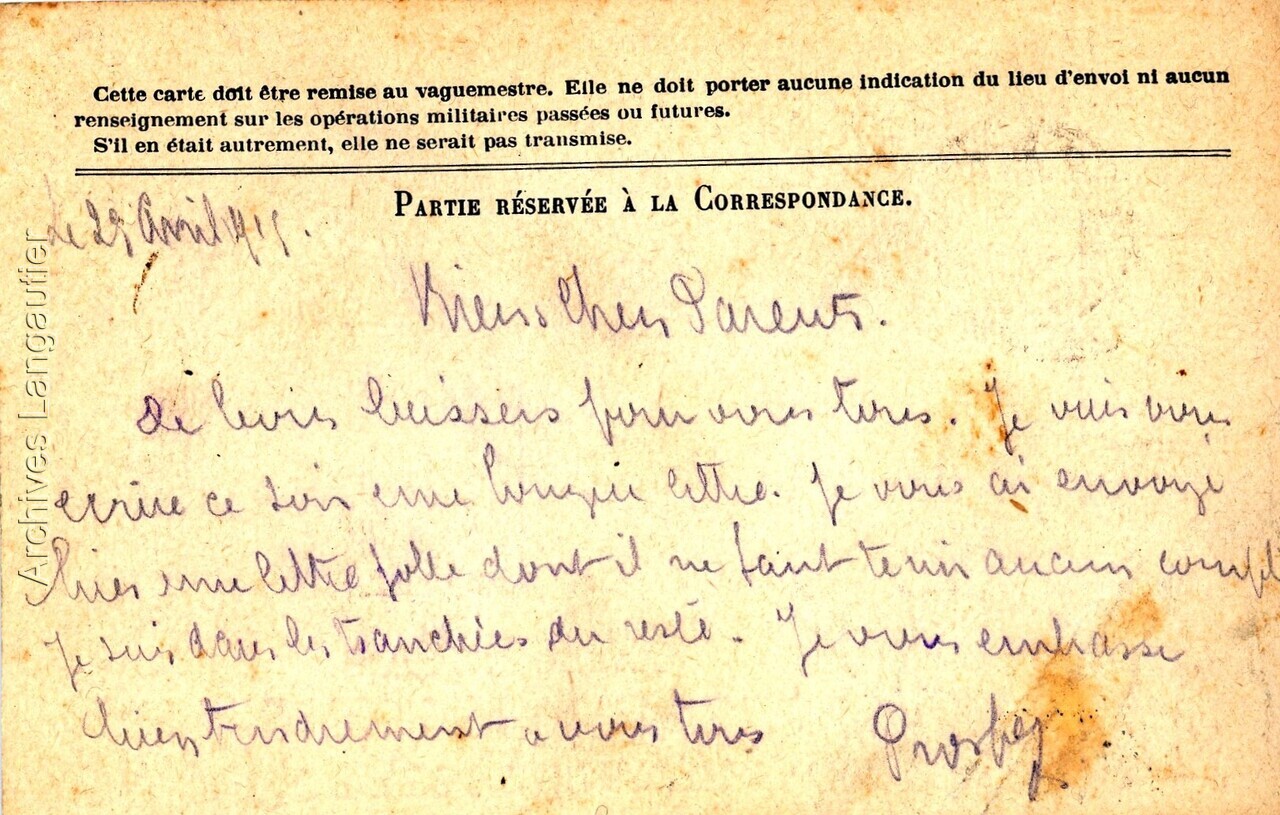 Cette carte doit être remise au vaguemestre. Elle ne doit porter aucune indication du lieu d'envoi ni aucun
renseignement sur les opérations militaires passées ou futures.
S'il en était autrement, elle ne serait pas transmise.
PARTIE RÉSERVÉE À LA CORRESPONDANCE.
Le Avril 1915.
Biens Chers Parents.
De bons baisers pour vous tous. Je vais vous
ecrire ce soir une longue lettre. Je vous ai envoyé
hier une lettre folle dont il ne faut tenir aucun compte
Je suis dans les tranchées du reste. Je vous embrasse
bien tendrement a vous tous
Prosper
Archives Langautier